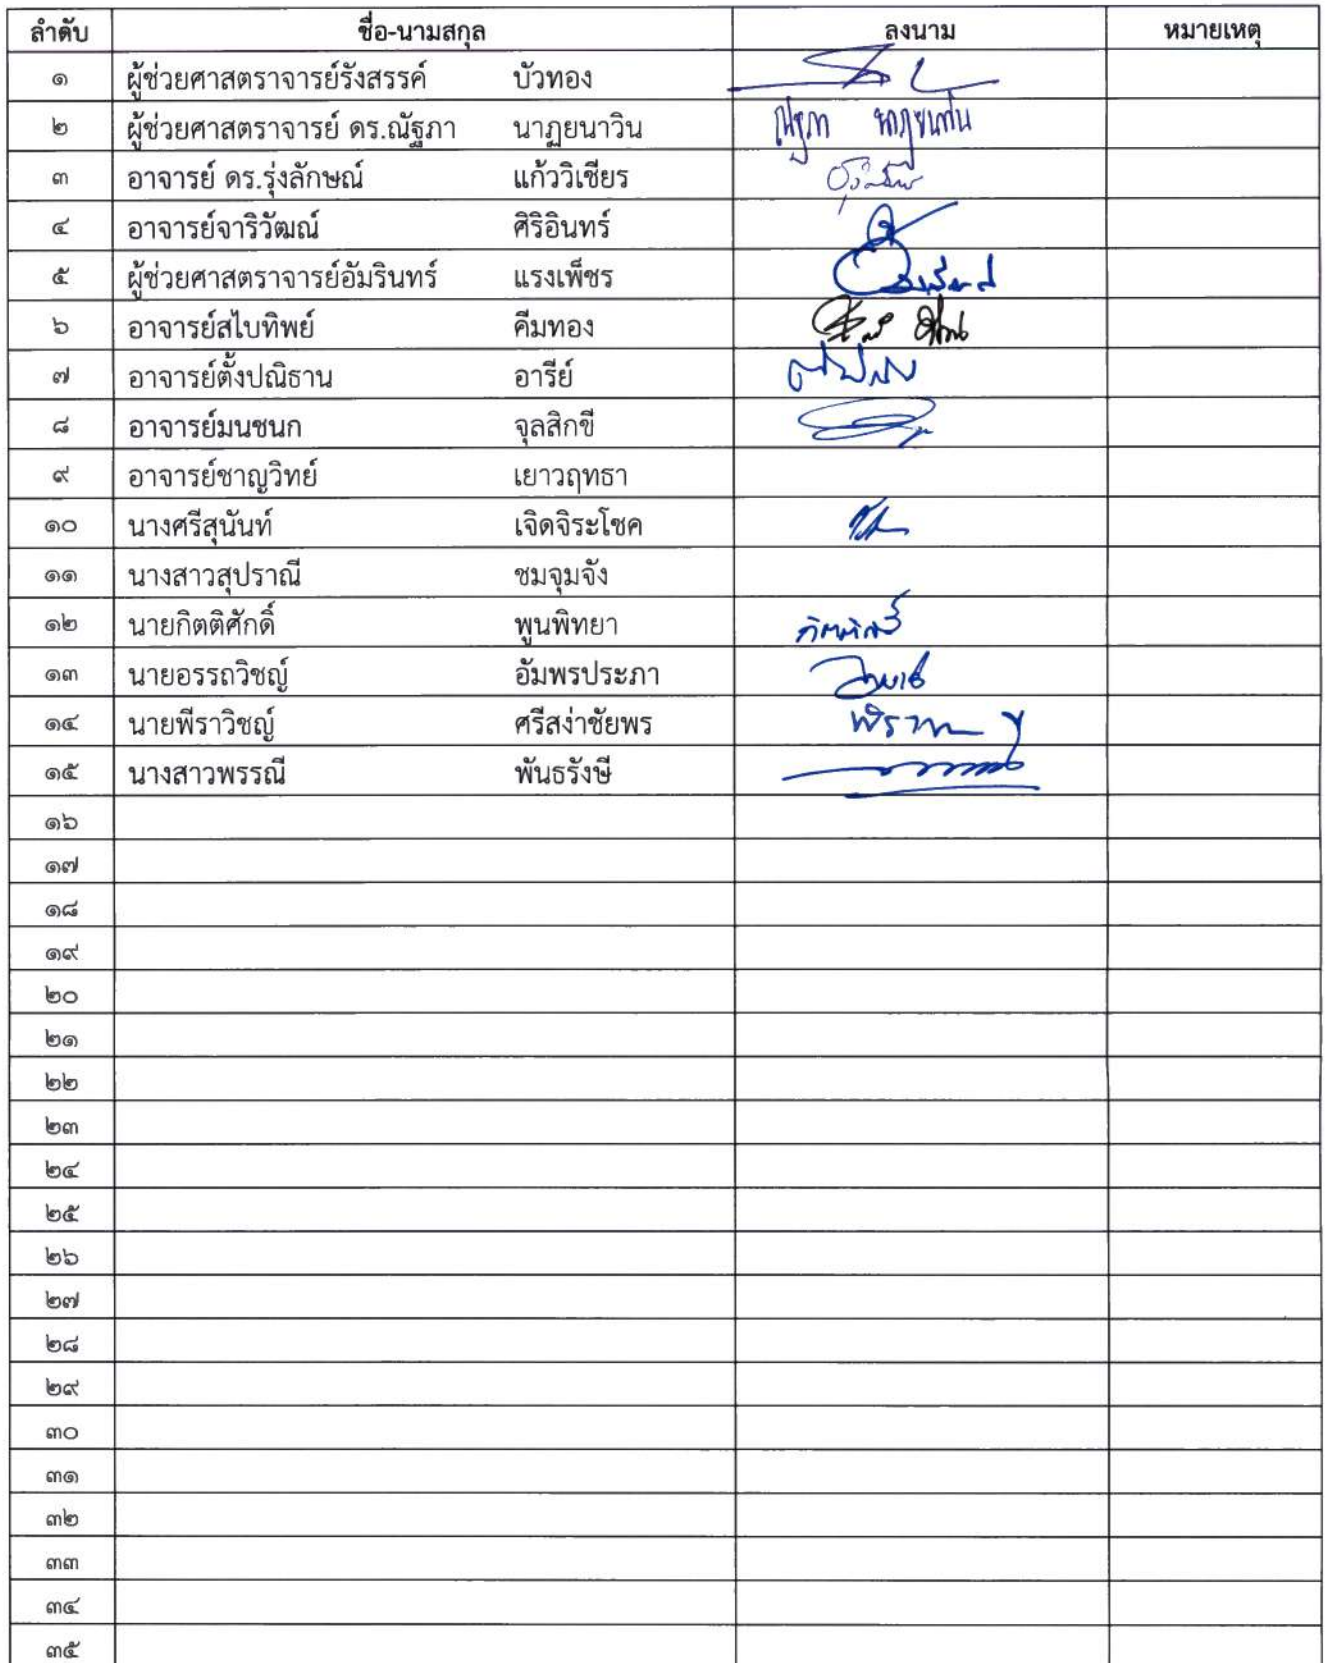 ลำดับ ชื่อ-นามสกุล ลงนาม หมายเหตุ
๑ ผู้ช่วยศาสตราจารย์รังสรรค์ บัวทอง
๒ ผู้ช่วยศาสตราจารย์ ดร.ณัฐภา นาฏยนาวิน ณัฐภา นาฏยนาวิน
๓ อาจารย์ ดร.รุ่งลักษณ์ แก้ววิเชียร
๔ อาจารย์จาริวัฒณ์ ศิริอินทร์
๕ ผู้ช่วยศาสตราจารย์อัมรินทร์ แรงเพ็ชร
๖ อาจารย์สไบทิพย์ คีมทอง
๗ อาจารย์ตั้งปณิธาน อารีย์
๘ อาจารย์มนชนก จุลสิกขี
๙ อาจารย์ชาญวิทย์ เยาวฤทธา
๑๐ นางศรีสุนันท์ เจิดจิระโชค
๑๑ นางสาวสุปราณี ชมจุมจัง
๑๒ นายกิตติศักดิ์ พูนพิทยา กิตติศักดิ์
๑๓ นายอรรถวิชญ์ อัมพรประภา
๑๔ นายพีราวิชญ์ ศรีสง่าชัยพร
๑๕ นางสาวพรรณี พันธรังษี
๑๖
๑๗
๑๘
๑๙
๒๐
๒๑
๒๒
๒๓
๒๔
๒๕
๒๖
๒๗
๒๘
๒๙
๓๐
๓๑
๓๒
๓๓
๓๔
๓๕